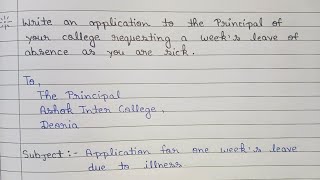 Write an application to the Principal of
your college requesting a week's leave of
absence as you are sick.
To,
The Principal
Ashok Inter College,
Deoria
Subject :- Application for one week's leave
due to illness